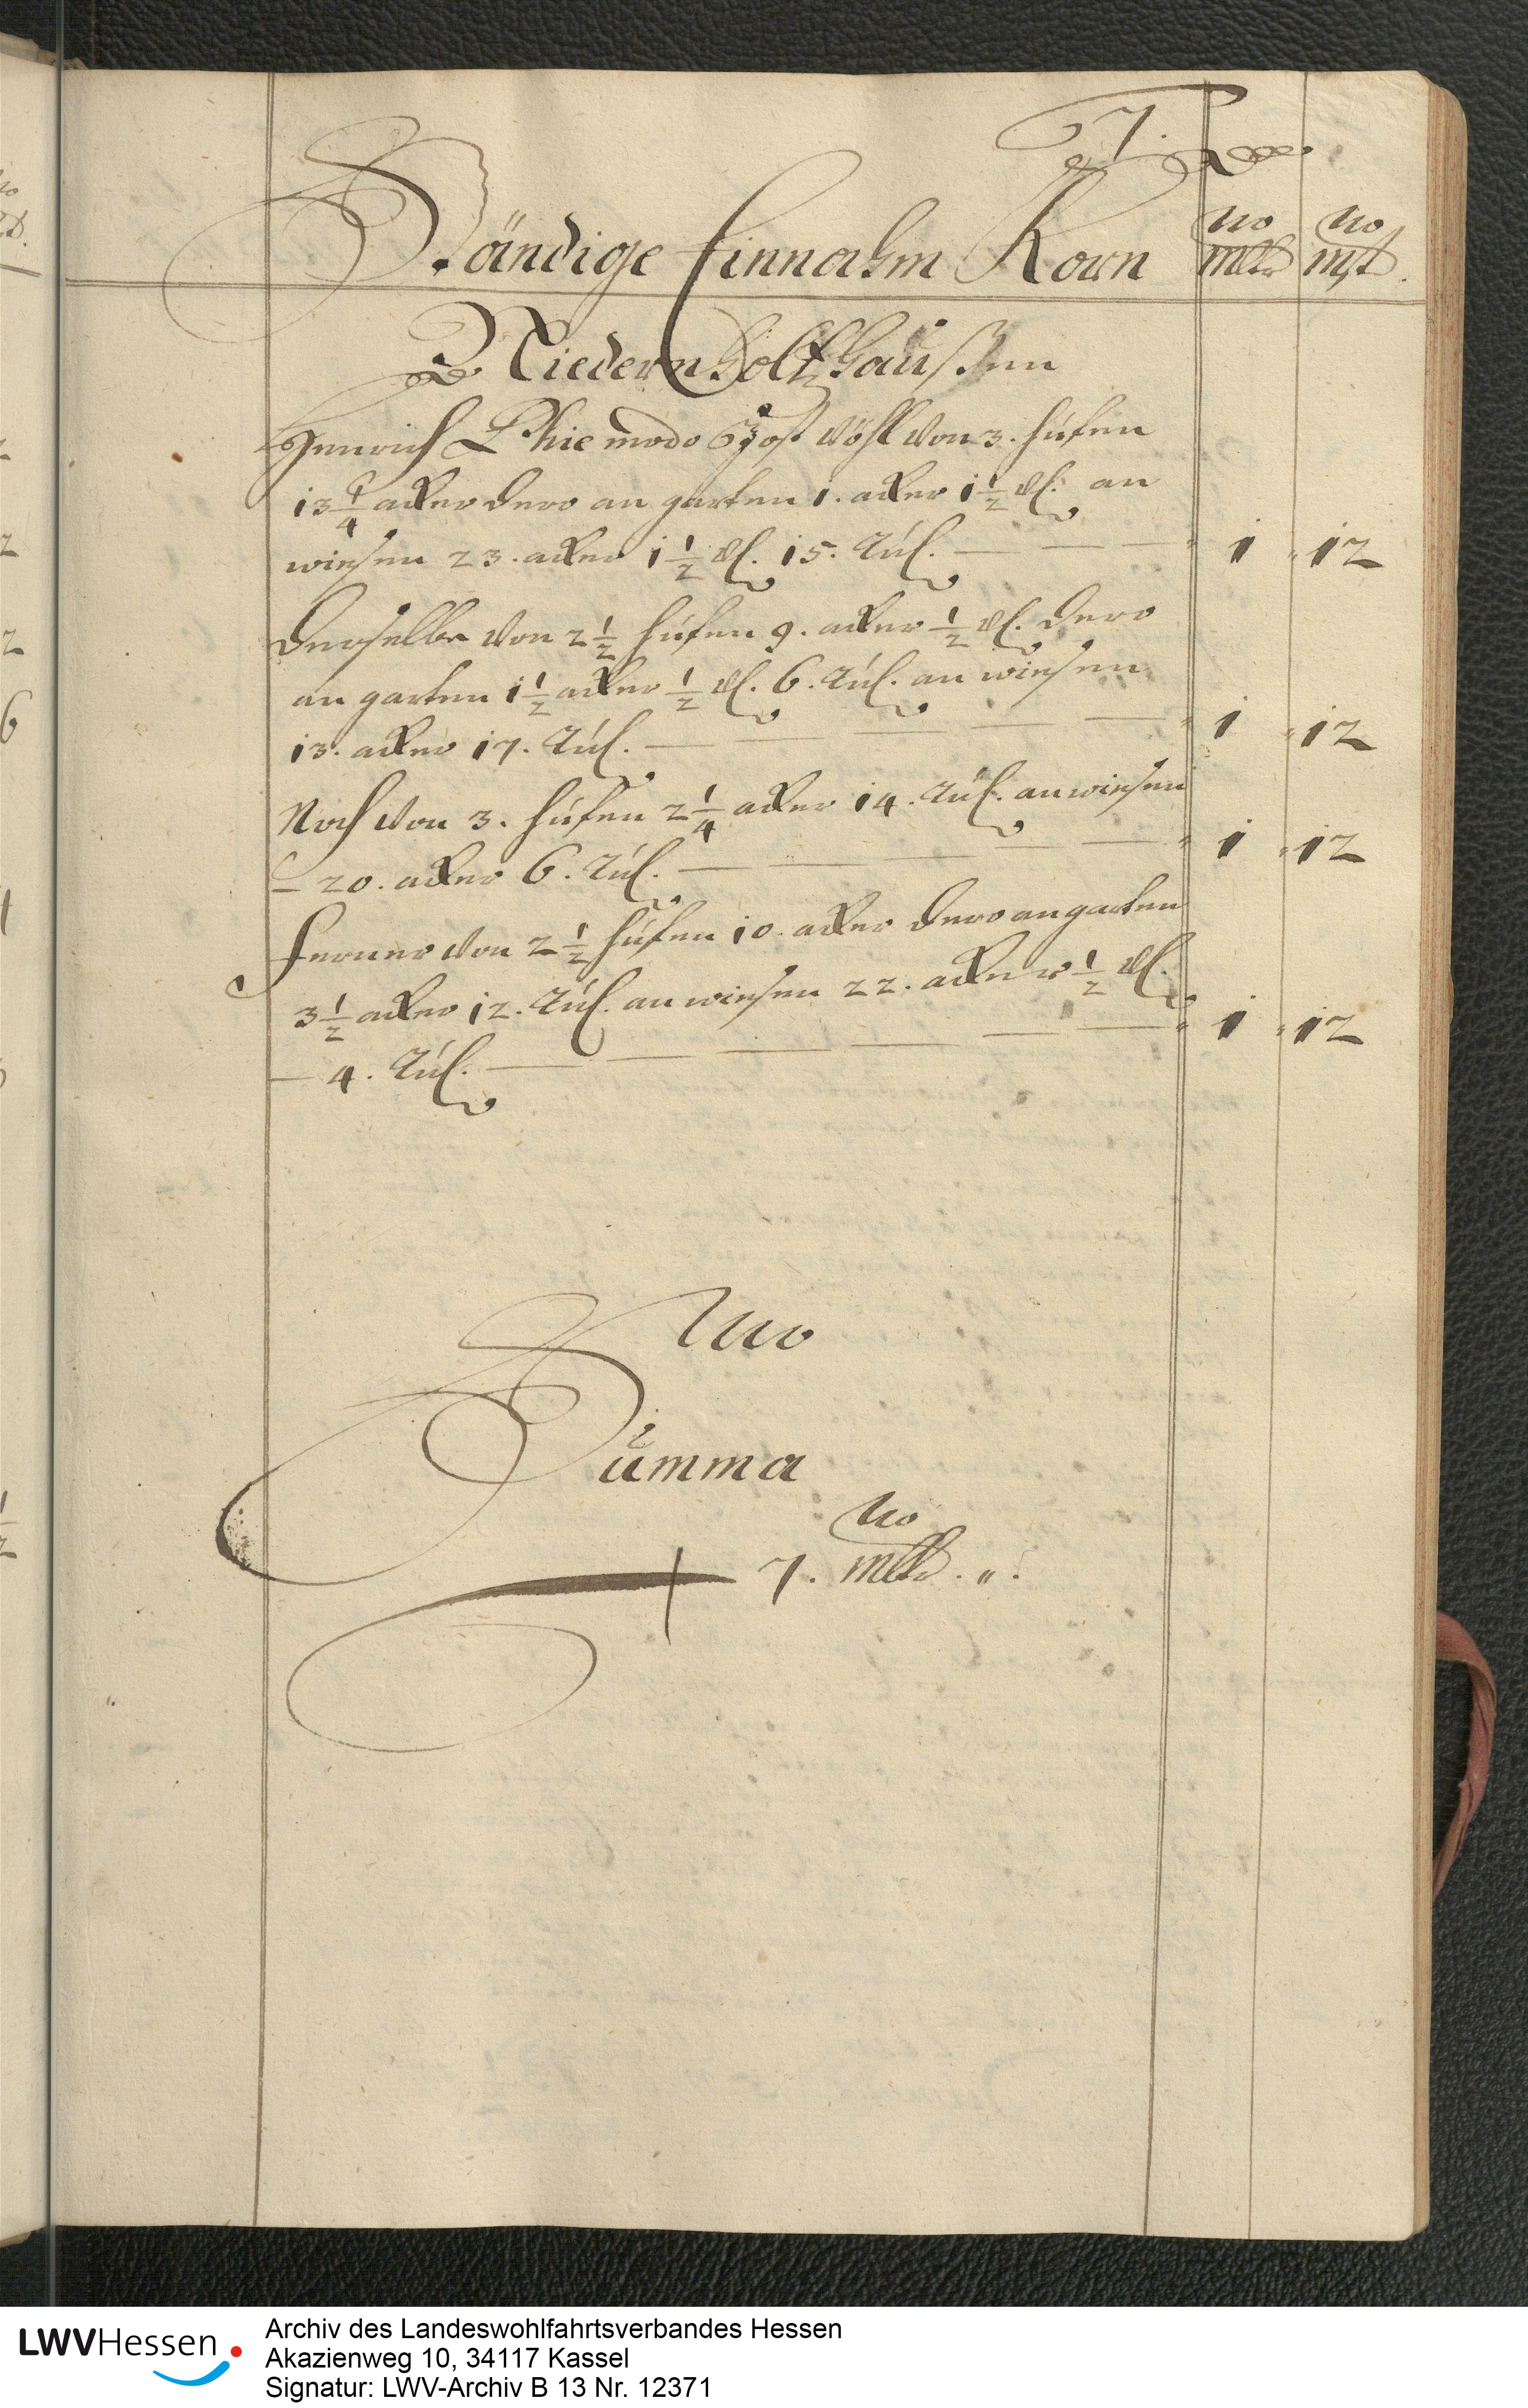 7.
Ständige Einnahm Korn
mltr mst.
Niedernholtzhaußen
Henrich Thie modo Jost Döhl von 3. hufen
13 1/4 acker dero an garten 1. acker 1 1/2 vl. an
wiesen 23. acker 1 1/2 vl. 15. Rut. 1 " 12
Derselbe von 2 1/2 hufen 9. acker 1/2 vl. dero
an garten 1 1/2 acker 1/2 vl. 6. Rut. an wiesen
13. acker 17. Rut. 1 " 12
Noch von 3. hufen 2 1/4 acker 14. Rut. an wiesen
20. acker 6. Rut. 1 " 12
Ferner von 2 1/2 hufen 10. acker dero an garten
3 1/2 acker 12. Rut. an wiesen 22. acker 1/2 vl.
4. Rut. 1 " 12
Summa
7. mltr. ".
LWVHessen
Archiv des Landeswohlfahrtsverbandes Hessen
Akazienweg 10, 34117 Kassel
Signatur: LWV-Archiv B 13 Nr. 12371